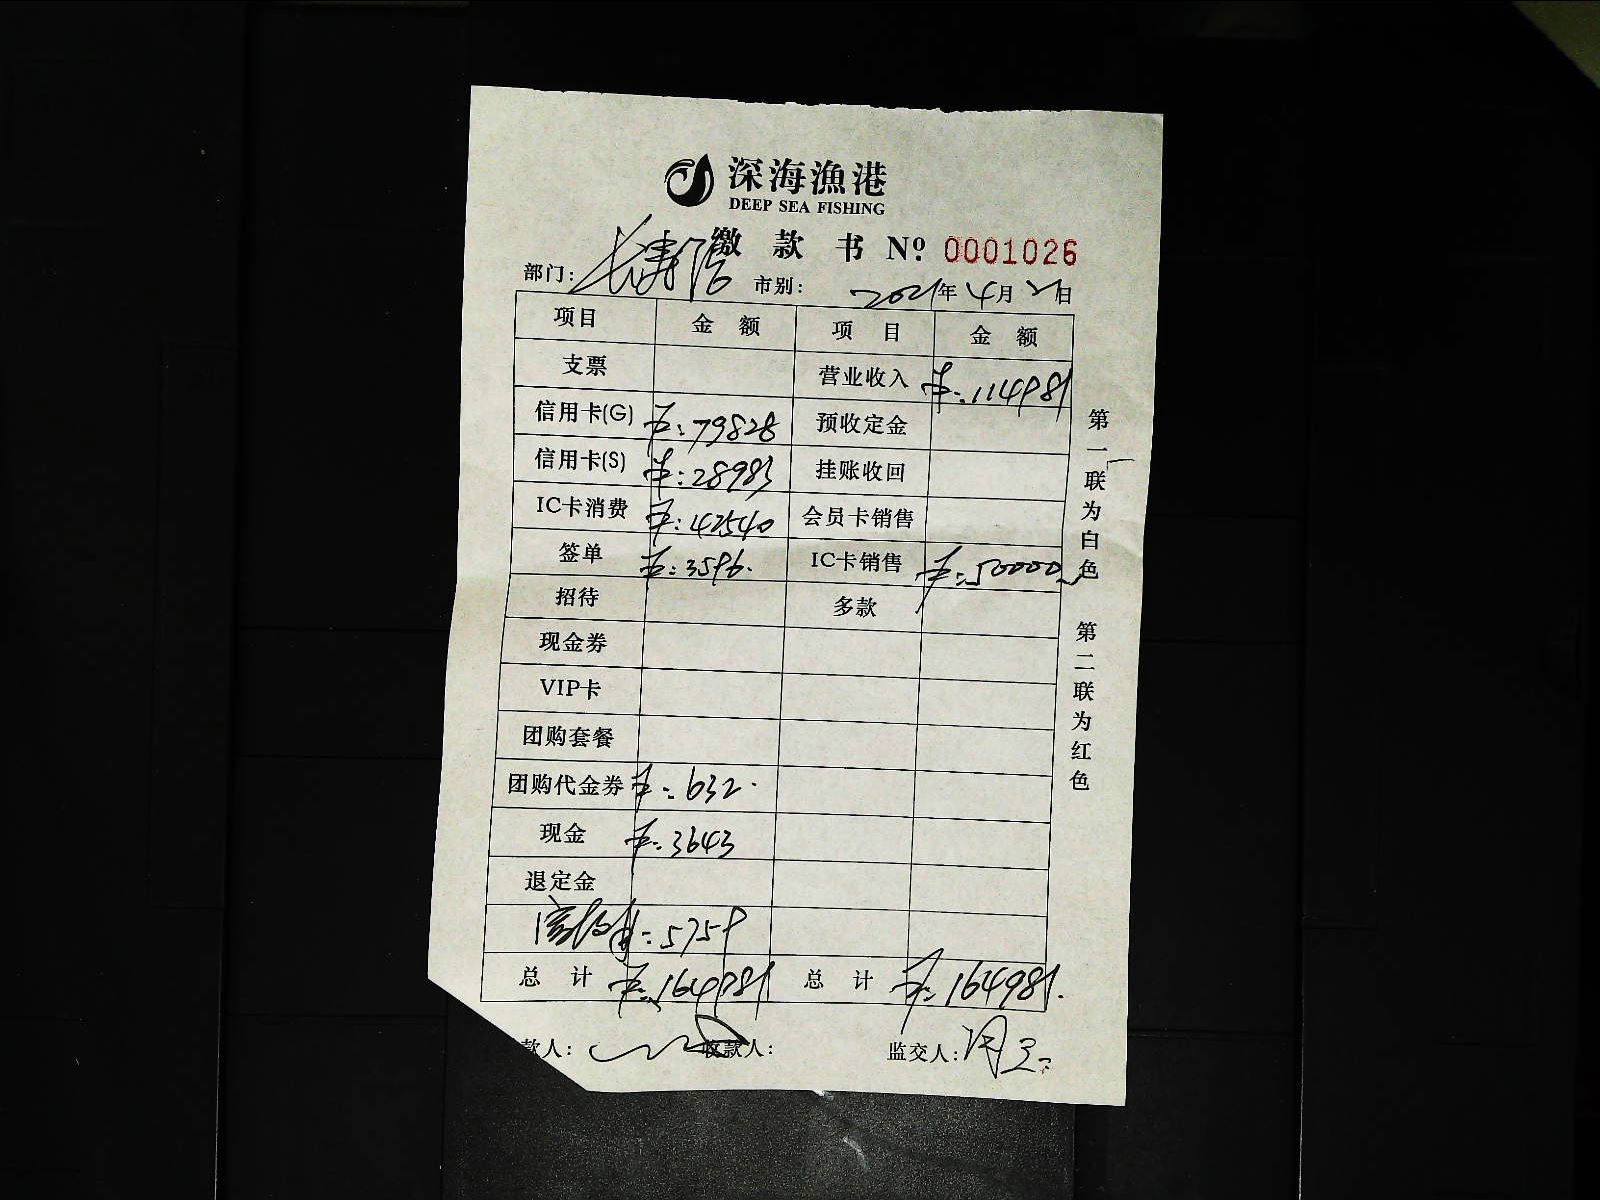 深海漁港
DEEP SEA FISHING
缴款书 Nº: 0001026
部门: 市别: 2021年4月21日
项目 金额 项目 金额
支票 营业收入 ¥:114981
信用卡(G) ¥:79828 预收定金
信用卡(S) ¥:28983 挂账收回
IC卡消费 ¥:42540 会员卡销售
签单 ¥:3596. IC卡销售 ¥:50000
招待 多款
现金券
VIP卡
团购套餐
团购代金券 ¥:632.
现金 ¥:3643
退定金
¥:5759
总计 ¥:164981 总计 ¥:164981.
款人: 收款人: 监交人:
第一联为白色 第二联为红色